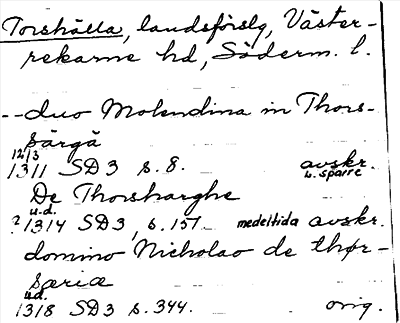 Torshälla, landsförslg, Väster-
rekarne hd, Söderm. l.
-- duo Molendina in Thors-
särgä
12/3
1311 SD3 s. 8. avskr.
u. sparre
De Thorsharghe
u.d.
? 1314 SD3, s. 157 medeltida avskr.
domino Nicholao de thør-
særiæ
u.d.
1318 SD3 s. 344. orig.